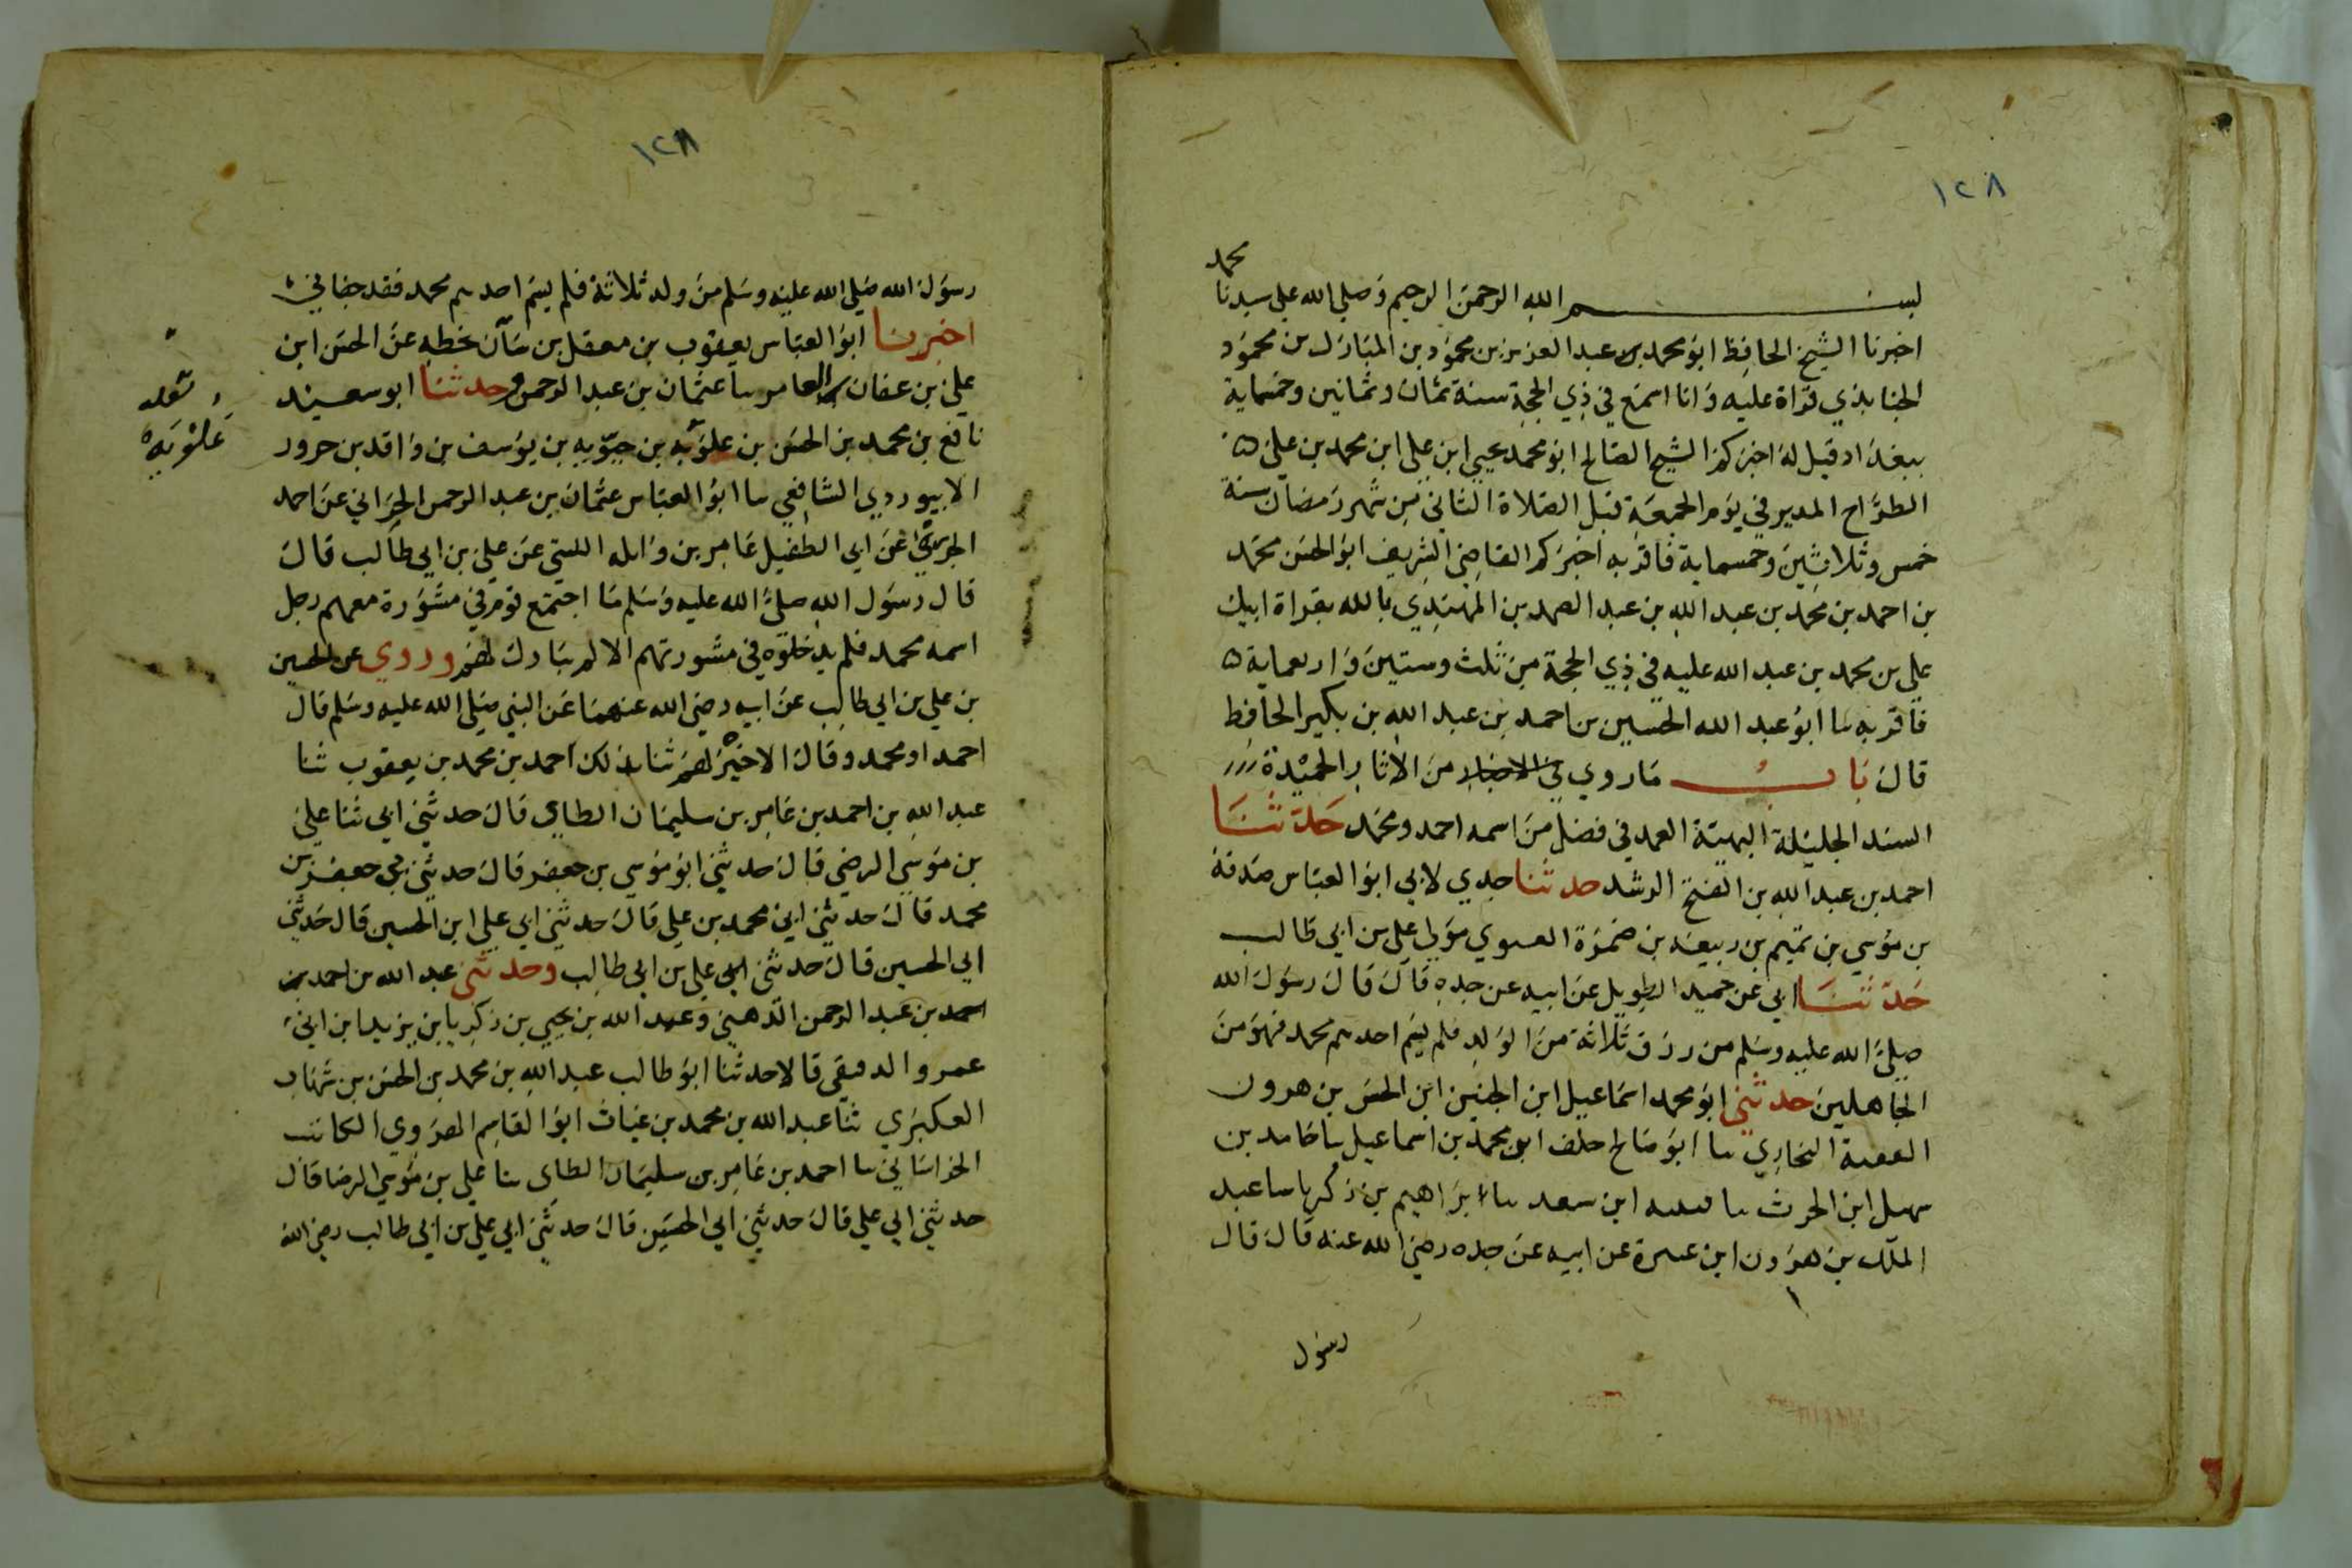 ١٢٨
بسم الله الرحمن الرحيم وصلى الله على سيدنا محمد
اخبرنا الشيخ الحافظ ابو محمد عبد العزيز بن محمود بن المبارك بن محمود
الجنابذي قراة عليه وانا اسمع في ذي الحجة سنة ثمان وثمانين وخمسماية
ببغداد قيل له اخبركم الشيخ الصالح ابو محمد يحيى ابن علي ابن محمد بن علي
الطراح المدير في يوم الجمعة قبل الصلاة الثاني من شهر رمضان سنة
خمس وثلاثين وخمسماية فاقر به اخبركم القاضي الشريف ابو الحسن محمد
بن احمد بن محمد بن عبد الله بن عبد الصمد بن المهتدي بالله بقراة ابيك
علي بن محمد بن عبد الله عليه في ذي الحجة من ثلث وستين واربعماية
فاقر به سا ابو عبد الله الحسين بن احمد بن عبد الله بن بكير الحافظ
قال باب ما روي في الاخبار من الاثار الحميدة
السند الجليلة البهية العمد في فضل من اسمه احمد ومحمد حدثنا
احمد بن عبد الله بن الفتح الرشد حدثنا جدي لابي ابو العباس صدقة
بن موسي بن تميم بن ربيعه بن ضمرة مولى علي بن ابي طالب
حدثنا ابي عن حميد الطويل عن ابيه عن جده قال قال رسول الله
صلى الله عليه وسلم من رزق ثلاثة من الولد فلم يسم احدهم محمد فهو من
الجاهلين حدثني ابو محمد اسماعيل ابن ابن الحسن بن هرون
البخاري سا ابو صالح خلف ابن محمد بن اسماعيل سا حامد بن
سهل ابن الحرث سا ابن سعد سا ابراهيم بن زكريا سا عبد
الملك بن هرون ابن عن ابيه عن جده رضي الله عنه قال قال
رسول
١٢٨
رسول الله صلى الله عليه وسلم من ولد ثلاثة فلم يسم احدهم محمد فقد جفاني
اخبرنا ابو العباس يعقوب بن معقل بن سآن بخطه عن الحسن ابن
علي بن عفان العامر سا عثمان بن عبد الرحمن وحدثنا ابو سعيد
نافع بن محمد بن الحسن بن علويه بن حيويه بن يوسف بن واقد بن حرور
الابيوردي الشافعي سا ابو العباس عثمان بن عبد الرحمن الحراني عن احمد
عن ابي الطفيل عامر بن واىله الليثي عن علي بن ابي طالب قال
قال رسول الله صلى الله عليه وسلم ما اجتمع قوم في مشورة معهم رجل
اسمه محمد فلم يدخلوه في مشورتهم الا لم يبارك لهم وروي عن الحسين
بن علي بن ابي طالب عن ابيه رضي الله عنهما عن النبي صلى الله عليه وسلم قال
احمد او محمد وقال الا خير لهم ثنا بذلك احمد بن محمد بن يعقوب ثنا
عبد الله بن احمد بن عامر بن سليمان الطاي قال حدثني ابي ثنا علي
بن موسى الرضي قال حدثني ابو موسي بن جعفر قال حدثني ابي جعفر بن
محمد قال حدثني ابي محمد بن علي قال حدثني ابي علي ابن الحسين قال حدثني
ابي الحسين قال حدثني ابي علي بن ابي طالب وحدثني عبد الله بن احمد بن
بن عبد الرحمن الذهبي وعبد الله بن يحيى بن زكريا بن يزيد ابن ابي
عمر والدقيقي قالا حدثنا ابو طالب عبد الله بن محمد بن الحسن بن شهاب
العكبري ثنا عبد الله بن محمد بن غياث ابو القاسم الهروي الكاتب
الخراساني سا احمد بن عامر بن سليمان الطاي سا علي بن موسي الرضا قال
حدثني ابي علي قال حدثني ابي الحسين قال حدثني ابي علي بن ابي طالب رضي الله
علويه